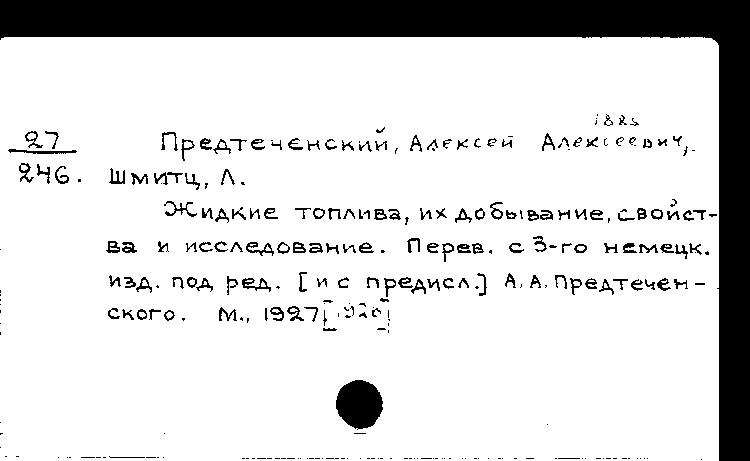 27
246.
1885
Предтеченский, Алексей Алексеевич,
Шмитц, Л.
Жидкие топлива, их добывание, свойст-
ва и исследование. Перев. с 3-го немецк.
изд. под ред. [и с предисл.] А.А. Предтечен-
ского. М., 1927 [1926]